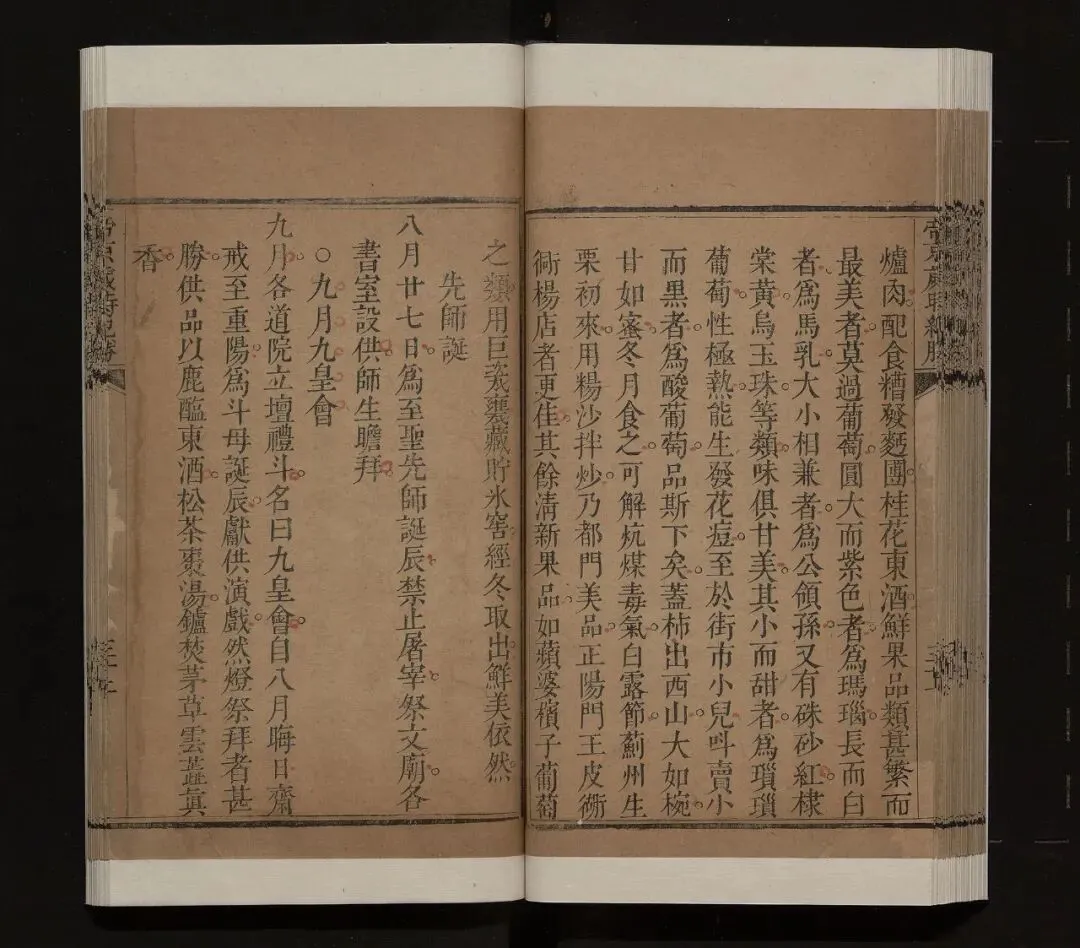 爐肉配食糟發麪團桂花東酒鮮果品類甚繁而
最美者莫過葡萄圓大而紫色者爲瑪瑙長而白
者爲馬乳大小相兼者爲公領孫又有硃砂紅棣
棠黄烏玉珠等類味俱甘美其小而甜者爲瑣瑣
葡萄性極熱能生發花痘至於街市小兒呌賣小
而黑者爲酸葡萄品斯下矣蓋柿出西山大如椀
甘如蜜冬月食之可解炕煤毒氣白露節薊州生
栗初來用餳沙拌炒乃都門美品正陽門王皮衚
衕楊店者更佳其餘清新果品如蘋婆檳子葡萄
之類用巨瓷甕藏貯氷窖經冬取出鮮美依然
先師誕
八月廿七日爲至聖先師誕辰禁止屠宰祭文廟各
書室設供師生瞻拜
○九月九皇會
九月各道院立壇禮斗名曰九皇會自八月晦日齋
戒至重陽爲斗母誕辰獻供演戲然燈祭拜者甚
勝供品以鹿醢東酒松茶棗湯鑪焚茅草雲蕋眞
香